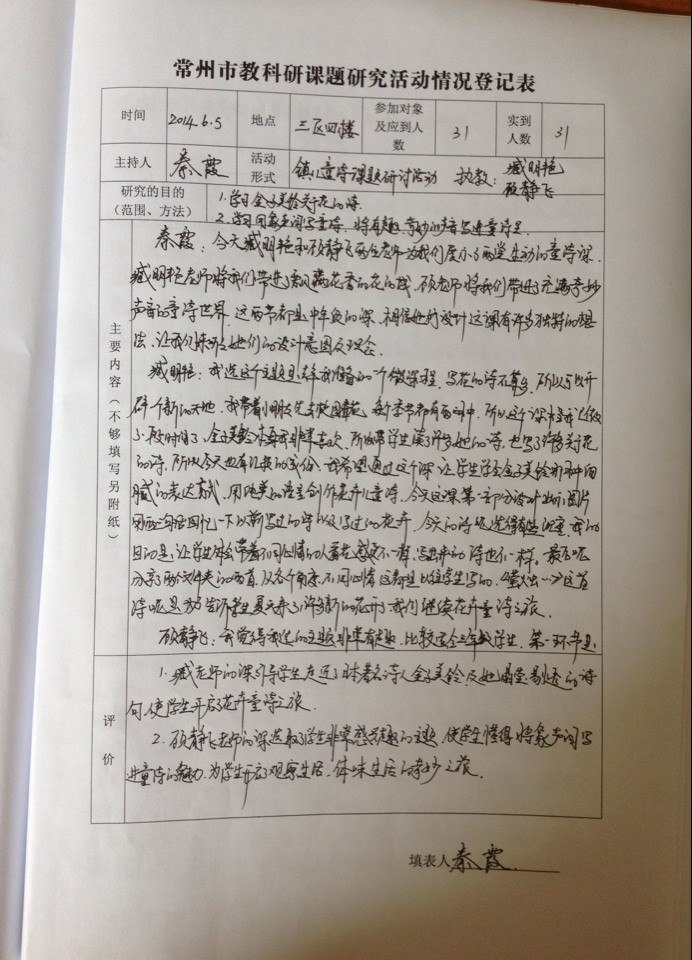 常州市教科研课题研究活动情况登记表
时间 2014.6.5 地点 三区四楼 参加对象及应到人数 31 实到人数 31
主持人 秦霞 活动形式 镇儿童诗课题研讨活动 执教：臧明艳 顾静飞
研究的目的（范围、方法） 1.学习金子美铃关于花的诗
2.学习用象声词写童诗，将有趣、奇妙的声音写进童诗里
主要内容（不够填写另附纸）
秦霞：今天臧明艳和顾静飞两位老师为我们展示了两堂生动的童诗课，
臧明艳老师将我们带进了飘满花香的花的，顾老师将我们带进了充满奇妙
声音的童诗世界，这两节都是中年段的课，相信她们设计这课有许多独特的想
法，让我们来听她们的设计意图及理念
臧明艳：我选这个主题是我们的一个微课程，写花的诗，所以可以开
辟一个新的天地，我带着小朋友先去校园赏花，每个季节都有，所以这个课我已做了
一段时间了，金子美铃本身我非常喜欢，所以带学生读了许多她的诗，也写了许多关于花
的诗，所以今天也有的成份，我希望通过这个课，让学生学会金子美铃诗中细
腻的表达方式，用唯美的语言创作花卉儿童诗，今天这课第一部分设计出示图片
用词句回忆一下以前写过的诗以及写过的花卉，今天的诗，我的
目的是：让学生体会带着不同心情的人看花感受不一样，写出来的诗也不一样，最后呢
分享文件夹的两首，从各个角度，不同心情这都是以往学生写的，《萤火虫…》这首
诗呢是为告诉学生夏天来了许多新的花开了我们继续花卉童诗之旅。
顾静飞：我觉得我选的主题非常有趣，比较适合三年级学生，第一环节是：
评价
1.臧老师的课引导学生走近了日本著名诗人金子美铃及她的诗
句，使学生开启了花卉童诗之旅。
2.顾静飞老师的课选取了学生非常感兴趣的主题，使学生懂得将象声词写
进童诗的魅力，为学生开启了观察生活，体味生活的奇妙之旅。
填表人 秦霞